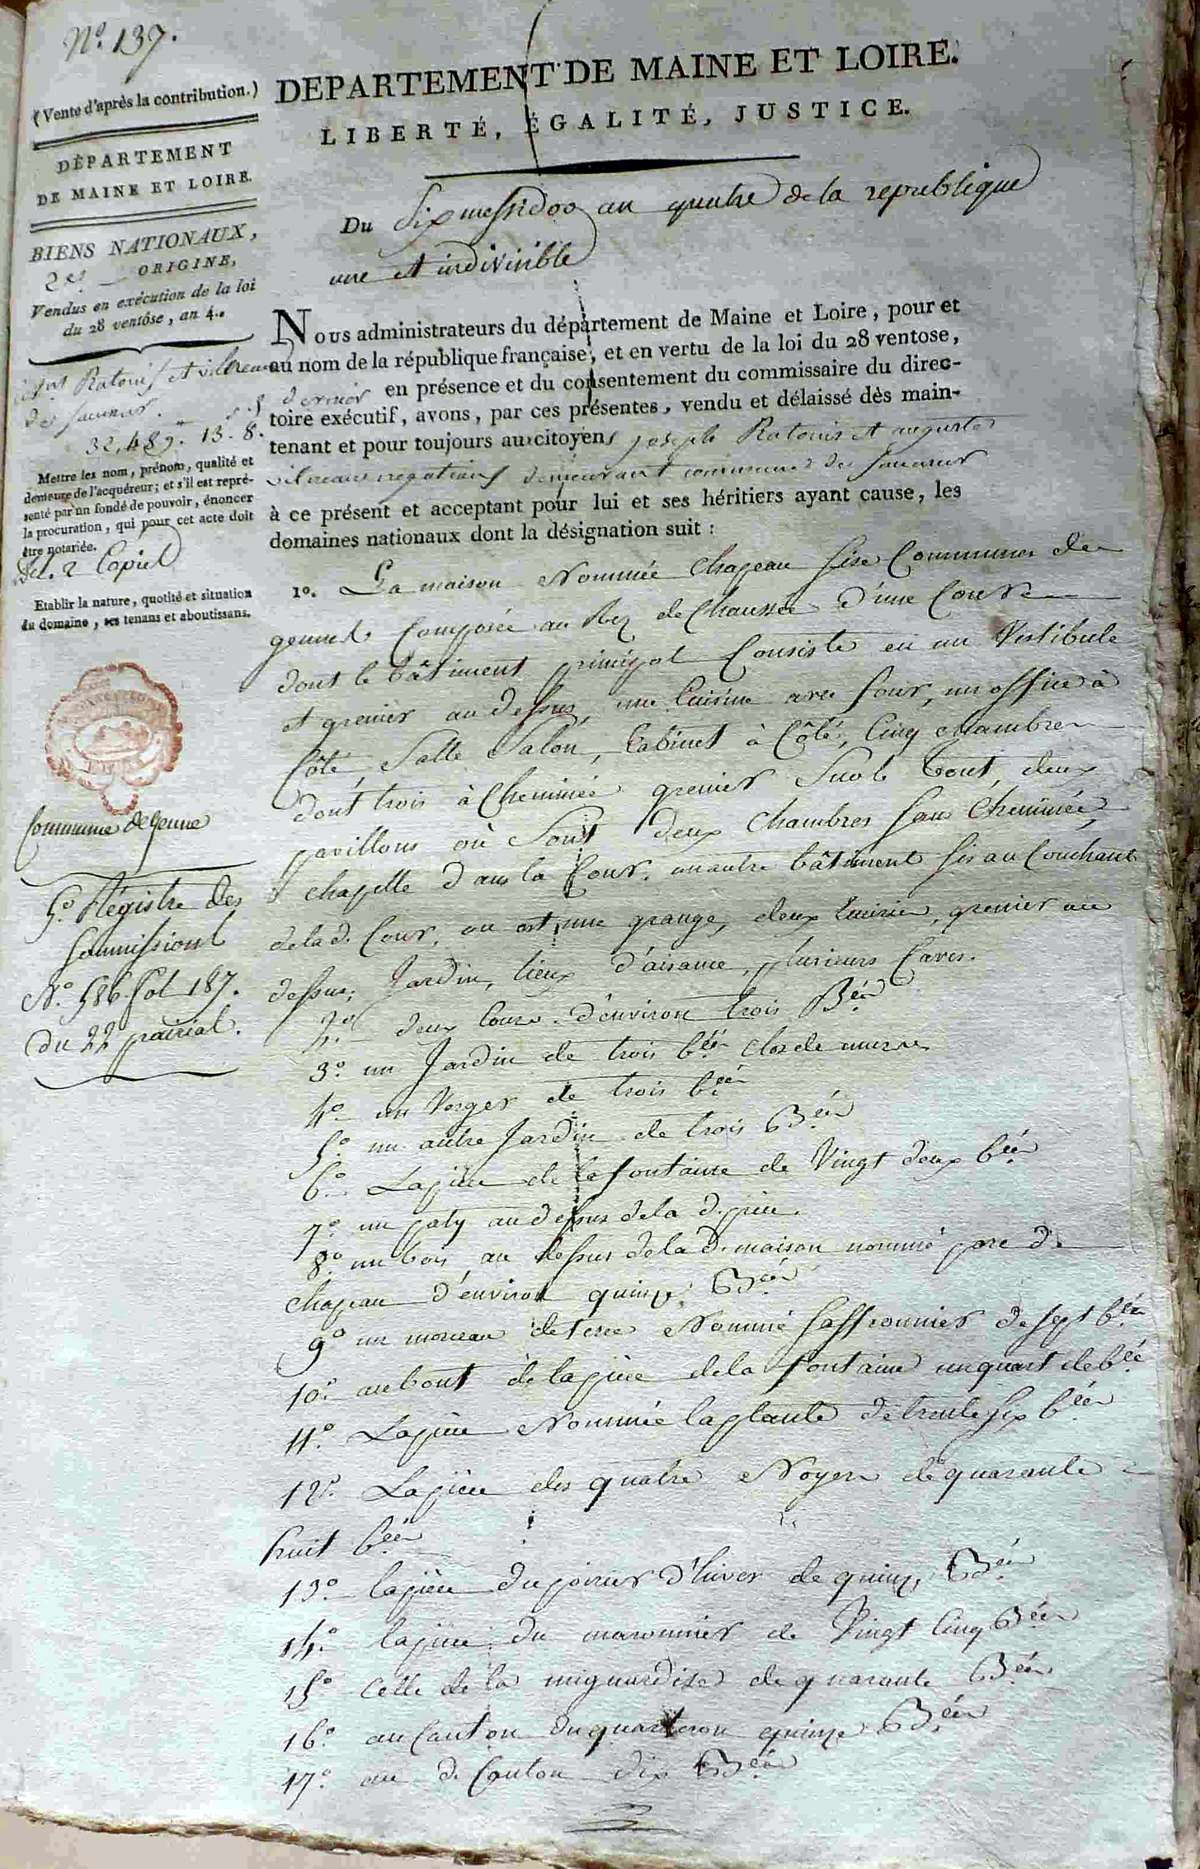 N.º 137.
(Vente d'après la contribution.)
DÉPARTEMENT
DE MAINE ET LOIRE.
BIENS NATIONAUX,
2e ORIGINE,
Vendus en exécution de la loi
du 28 ventôse, an 4.
Ratouis et vilneau
de Saumur.
32,489.ᵗᵗ 13.ˢ 8.
Mettre les nom, prénom, qualité et
demeure de l'acquéreur; et s'il est repré-
senté par un fondé de pouvoir, énoncer
la procuration, qui pour cet acte doit
être notariée.
Del. 2 Copies
Etablir la nature, quotité et situation
du domaine, ses tenans et aboutissans.
Commune de Genne
5.º Régistre des
Soumissions
N.º 586 fol 187.
du 22 prairial.
DEPARTEMENT DE MAINE ET LOIRE.
LIBERTÉ, ÉGALITÉ, JUSTICE.
Du Six messidor an quatre de la republique
une et indivisible
Nous administrateurs du département de Maine et Loire, pour et
au nom de la république française, et en vertu de la loi du 28 ventose,
dernier en présence et du consentement du commissaire du direc-
toire exécutif, avons, par ces présentes, vendu et délaissé dès main-
tenant et pour toujours au citoyens joseph Ratouis et auguste
vilneau negotians demeurant commune de Saumur
à ce présent et acceptant pour lui et ses héritiers ayant cause, les
domaines nationaux dont la désignation suit :
1º. La maison Nommée Chapeau sise Commune de
gennes Composée au Rez de Chaussée d'une Cour
dont le bâtiment principal Consiste en un Vestibule
et grenier au dessus, une Cuisine avec four, un office à
Côté, Salle Salon, Cabinet à Côté, Cinq chambres
dont trois à Cheminée grenier Sur le tout, deux
pavillons où Sont deux Chambres Sans Cheminée,
chapelle dans la Cour. un autre bâtiment sis au Couchant
de la d. Cour, où est une grange, deux Ecuries, grenier au
dessus, Jardin, lieux d'aisance, plusieurs Caves.
2º deux Cours d'environ trois Bées
3º un Jardin de trois bées clos de murs
4º un Verger de trois bées
5º un autre Jardin de trois Bées
6º La pièce de la fontaine de Vingt deux bées
7º un paty au dessus de la d. pièce.
8º un bois au dessus de la d. maison nommé parc de
Chapeau d'environ quinze Bées
9º un morceau de terre Nommé Saffronnier de sept bées
10º au bout de la pièce de la fontaine un quart de bée
11º La pièce Nommée la plante de trente six bées
12º La pièce des quatre Noyers de quarante
huit bées
13º la pièce du poirier d'hiver de quinze Bées
14º la pièce du maronnier de Vingt Cinq Bées
15º Celle de la mignardise de quarante Bées
16º au Canton du quarteron quinze Bées
17º au d. Canton dix Bées